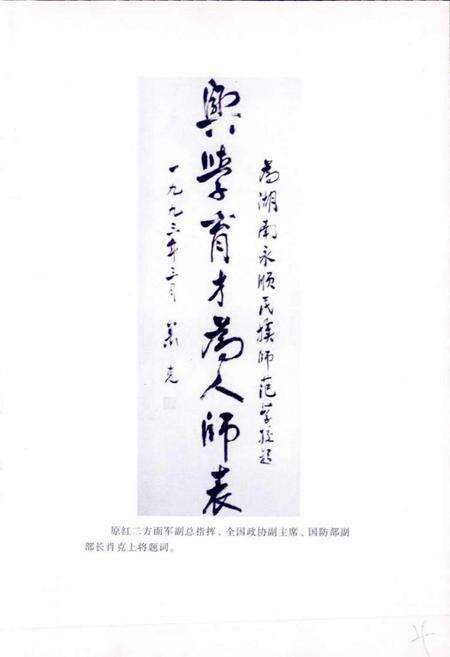 为湖南永顺民族师范学校题
興學育才為人師表
一九九三年三月 萧克
原红二方面军副总指挥、全国政协副主席、国防部副
部长肖克上将题词。